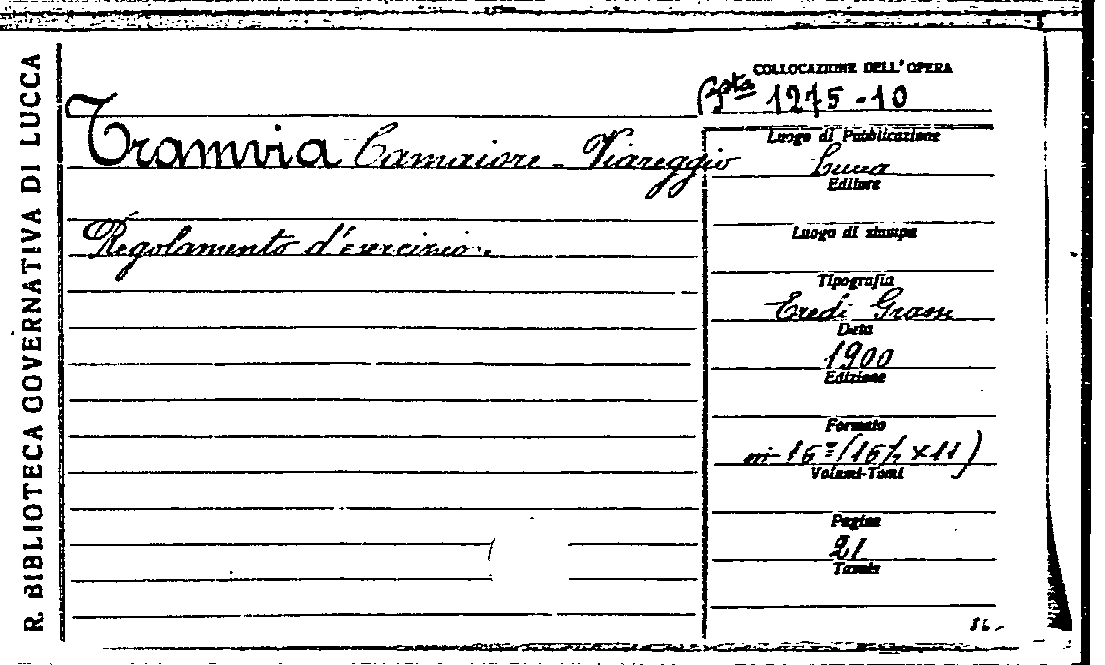 R. BIBLIOTECA GOVERNATIVA DI LUCCA
COLLOCAZIONE DELL'OPERA
Bsta 1275-10
Tramvia Camaiore - Viareggio
Regolamento d'esercizio.
Luogo di Pubblicazione
Lucca
Editore
Luogo di stampa
Tipografia
Eredi Grassi
Data
1900
Edizione
Formato
in-16º (16½ x 11)
Volumi-Tomi
Pagine
21
Tavole